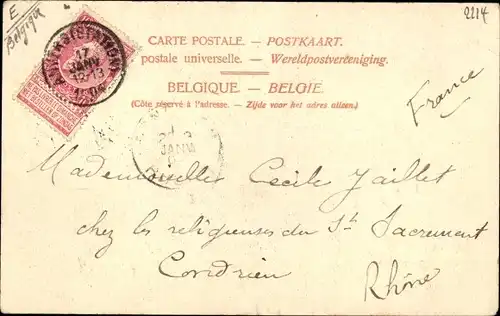 E
Belgique
2214
CARTE POSTALE. — POSTKAART.
postale universelle. — Wereldpostvereeniging.
BELGIQUE. — BELGIE.
(Côté réservé à l'adresse. — Zijde voor het adres alleen.)
17
JANV
12-13
JANV
France
Mademoiselles Cecile Jaillet
chez les religieuses du St Sacrement
Condrieu
Rhône